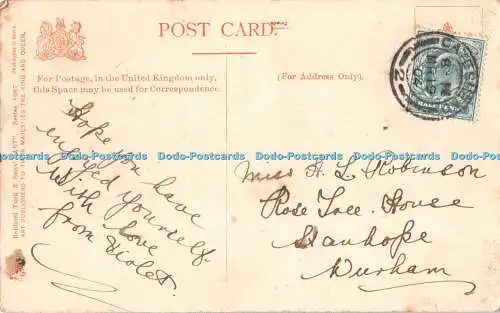 POST CARD.
For Postage, in the United Kingdom only,
this Space may be used for Correspondence.
(For Address Only).
Hope you have
enjoyed yourself.
With love
from Violet.
Miss H. L. Robinson
Rose Tree House
Stanhope
Durham
HALFPENNY
2
Raphael Tuck & Sons' 
ART PUBLISHERS TO THEIR MAJESTIES THE KING AND QUEEN.
Dodo-Postcards Dodo-Postcards Dodo-Postcards Dodo-Postcards Dodo-Postcards